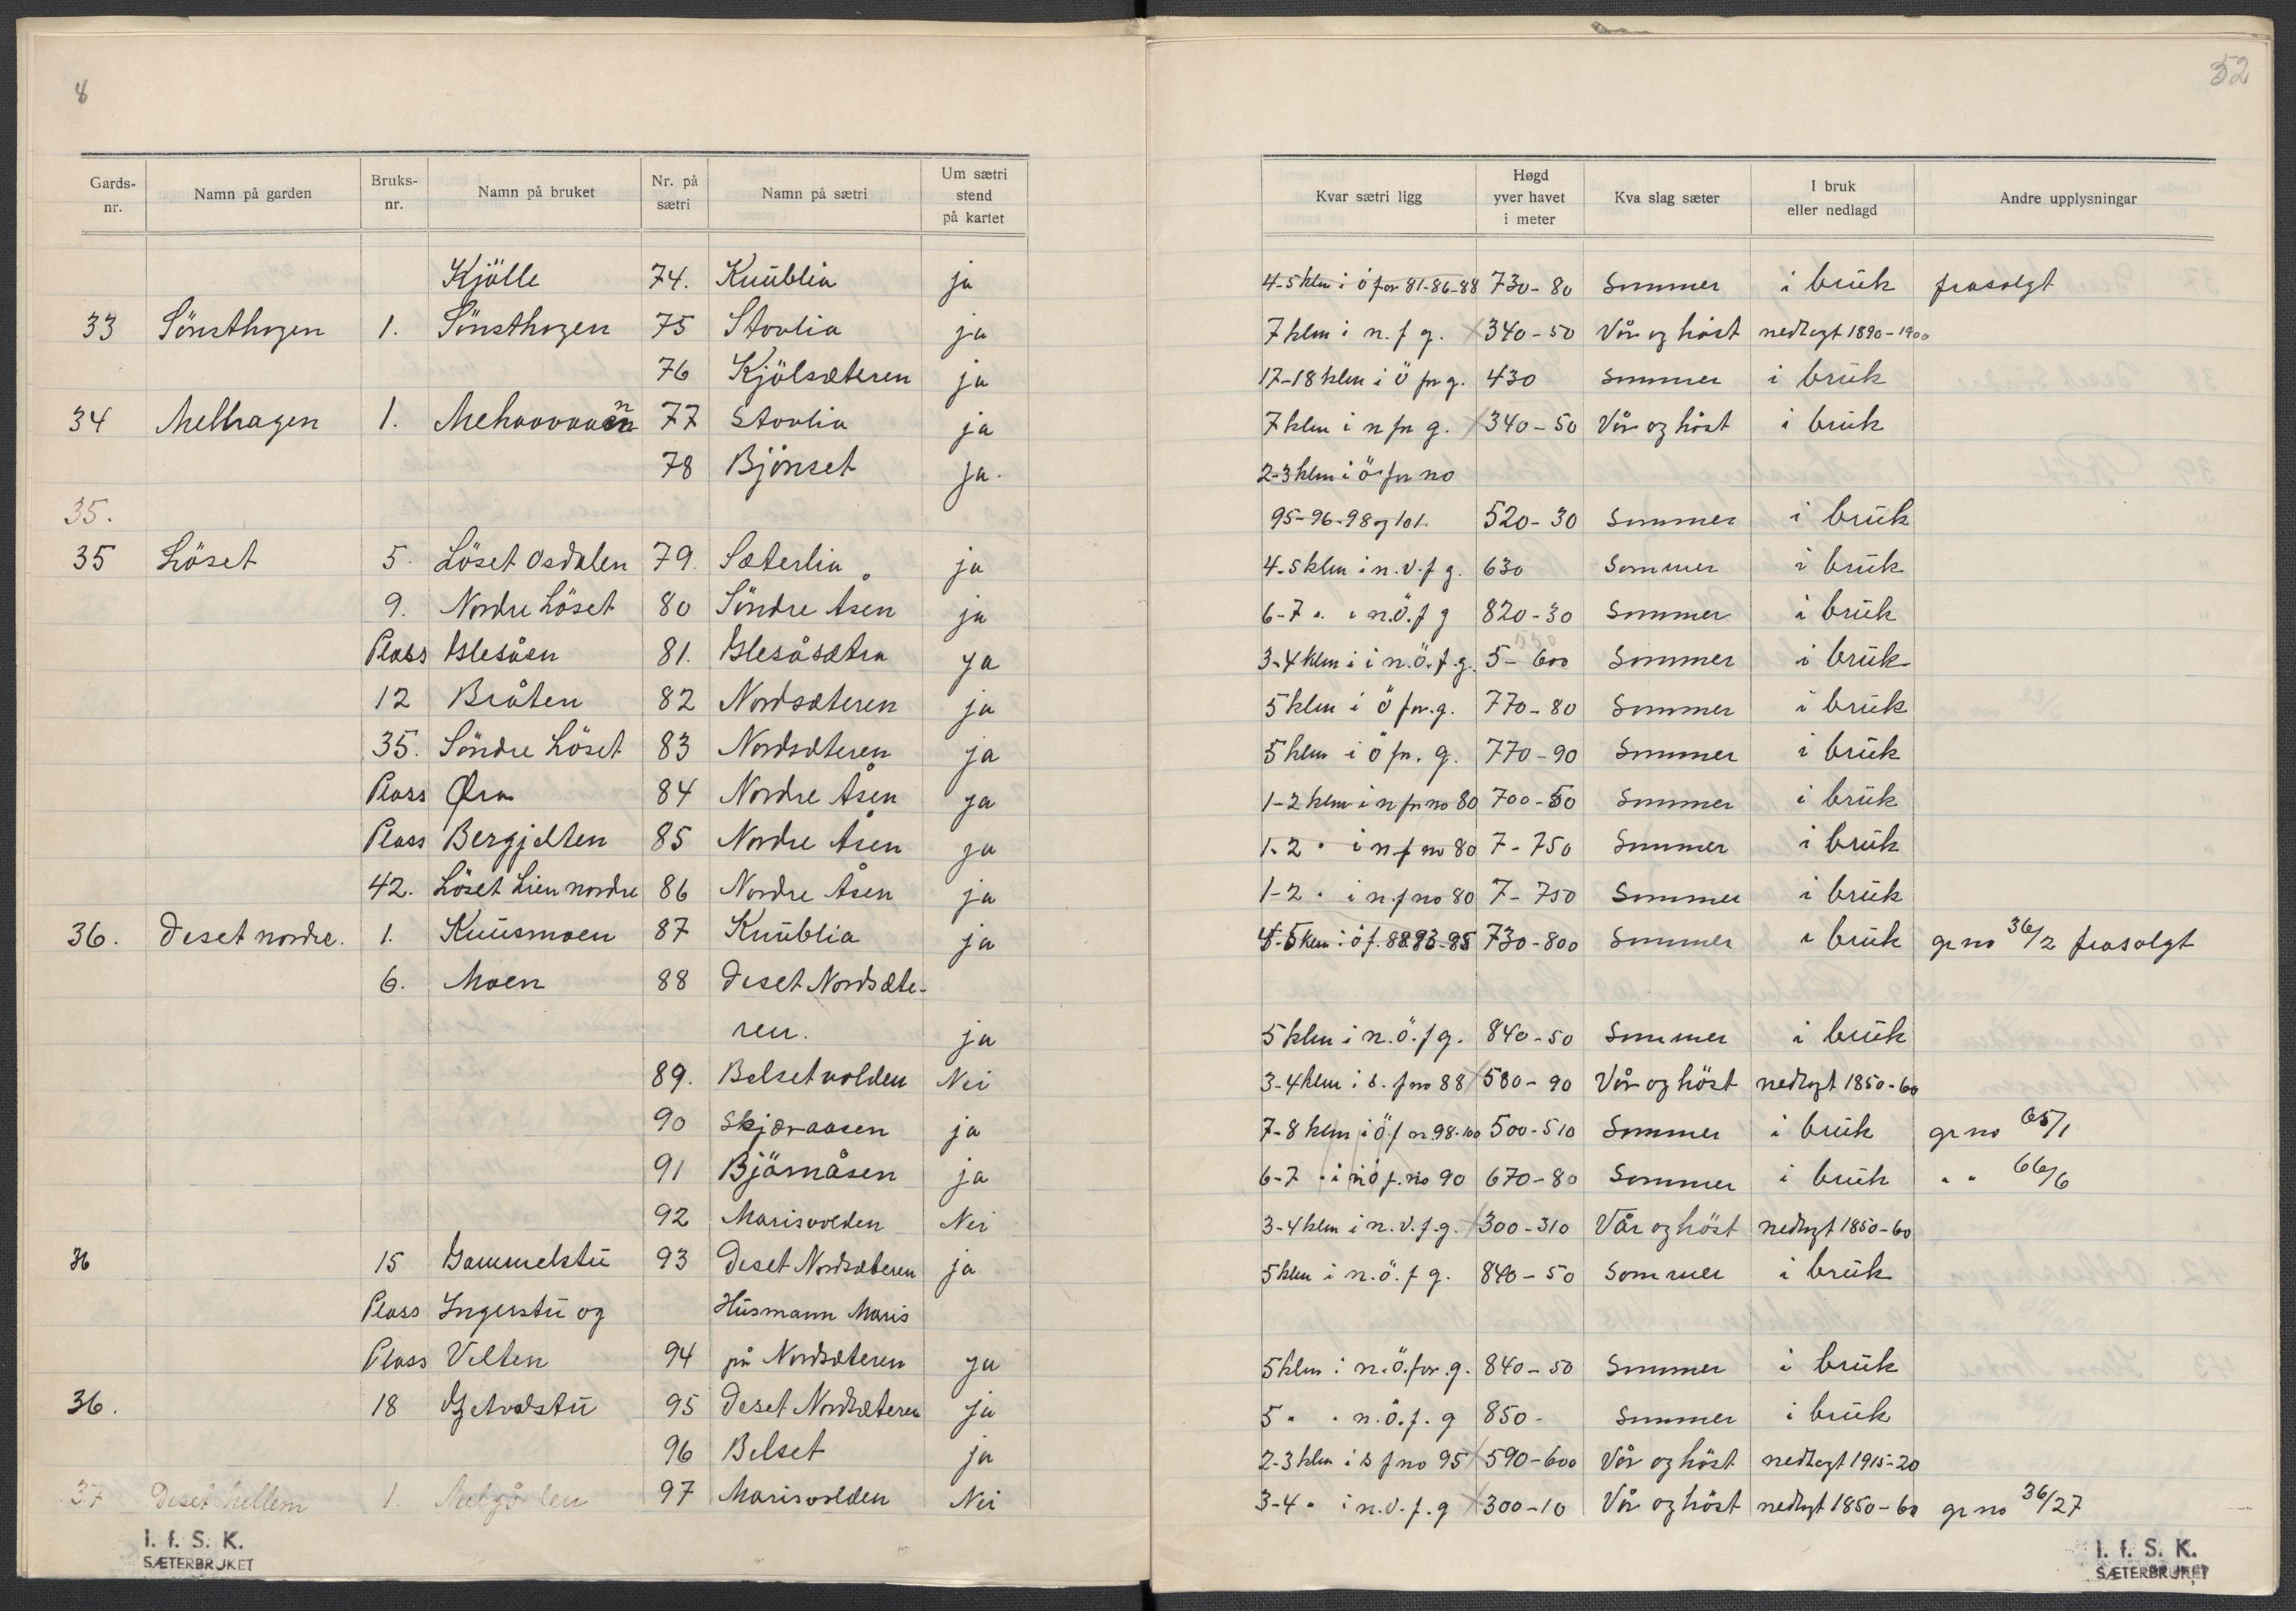 8
52
Gards-nr. Namn på garden Bruks-nr. Namn på bruket Nr. på sætri Namn på sætri Um sætri stend på kartet Kvar sætri ligg Høgd yver havet i meter Kva slag sæter I bruk eller nedlagd Andre upplysningar
Kjölle 74. Knüblia ja 4-5 klm i ö for 81-86-88 730-80 Sommer i brük frasolgt
33 Sönsthagen 1. Sönsthagen 75 Stavlia ja 7 klm i n. f g. 340-50 Vår og höst nedlagt 1890-1900
76 Kjölsæteren ja 17-18 klm i Ö for g. 430 Sommer i brük
34 Melhagen 1. 77 Stavlia ja 7 klm i n for g. 340-50 Vår og höst i brük
78 Bjönset ja. 2-3 klm i ö for no
35. 95-96-98 og 101. 520-30 Sommer i brük
35 Löset 5. Löset Osdalen 79. Sæterlia ja 4-5 klm i n.v. f g. 630 Sommer i brük
9. Nordre Löset 80 Söndre Åsen ja 6-7 " i n.ö. f g 820-30 Sommer i brük
Plass Glesåen 81. Glesåsætra ja 3-4 klm i i n.ö. f. g. 5-600 Sommer i brük
12 Bråten 82 Nordsæteren ja 5 klm i ö for. g. 770-80 Sommer i brük
35. Söndre Löset 83 Nordsæteren ja 5 klm i ö for. g. 770-90 Sommer i brük
Plass Øra 84 Nordre Åsen ja 1-2 klm i n for no 80 700-50 Sommer i brük
Plass Bergjelten 85 Nordre Åsen ja 1-2 " i n f no 80 7-750 Sommer i brük
42. Löset Lien nordre 86 Nordre Åsen ja 1-2 " i n f no 80 7-750 Sommer i brük
36. Deset nordre. 1. Knüsmoen 87 Knüblia ja 4-5 klm i ö f. 88 93-95 730-800 Sommer i brük gr no 36/2 frasolgt
6. Moen 88 Deset Nordsæte-
ren. ja 5 klm i n.ö. f g. 840-50 Sommer i brük
89. Belsetvolden Nei 3-4 klm i s. f no 88 580-90 Vår og höst nedlagt 1850-60
90 Skjæraasen ja 7-8 klm i ö. f nr 98-100 500-510 Sommer i brük gr no 65/1
91 Björnåsen ja 6-7 " i n ö f. no 90 670-80 Sommer i brük " " 66/6
92 Marisvolden Nei 3-4 klm i n.v. f. g. 300-310 Vår og höst nedlagt 1850-60
36 15 Gammelstü 93 Deset Nordsæteren ja 5 klm i n.ö. f g. 840-50 Sommer i brük
Plass Ingerstü og Hüsmann Maris
Plass Velten 94 på Nordsæteren ja 5 klm i n.ö. for. g. 840-50 Sommer i brük
36. 18 95 Deset Nordsæteren ja 5 " " n.ö. f. g 850- Sommer i brük
96 Belset ja 2-3 klm i s f no 95 590-600 Vår og höst nedlagt 1915-20
37 Deset mellem 1. 97 Marisvolden Nei 3-4 " i n.v. f. g 300-10 Vår og höst nedlagt 1850-60 gr no 36/27
I. f. S. K.
SÆTERBRUKET
I. f. S. K.
SÆTERBRUKET